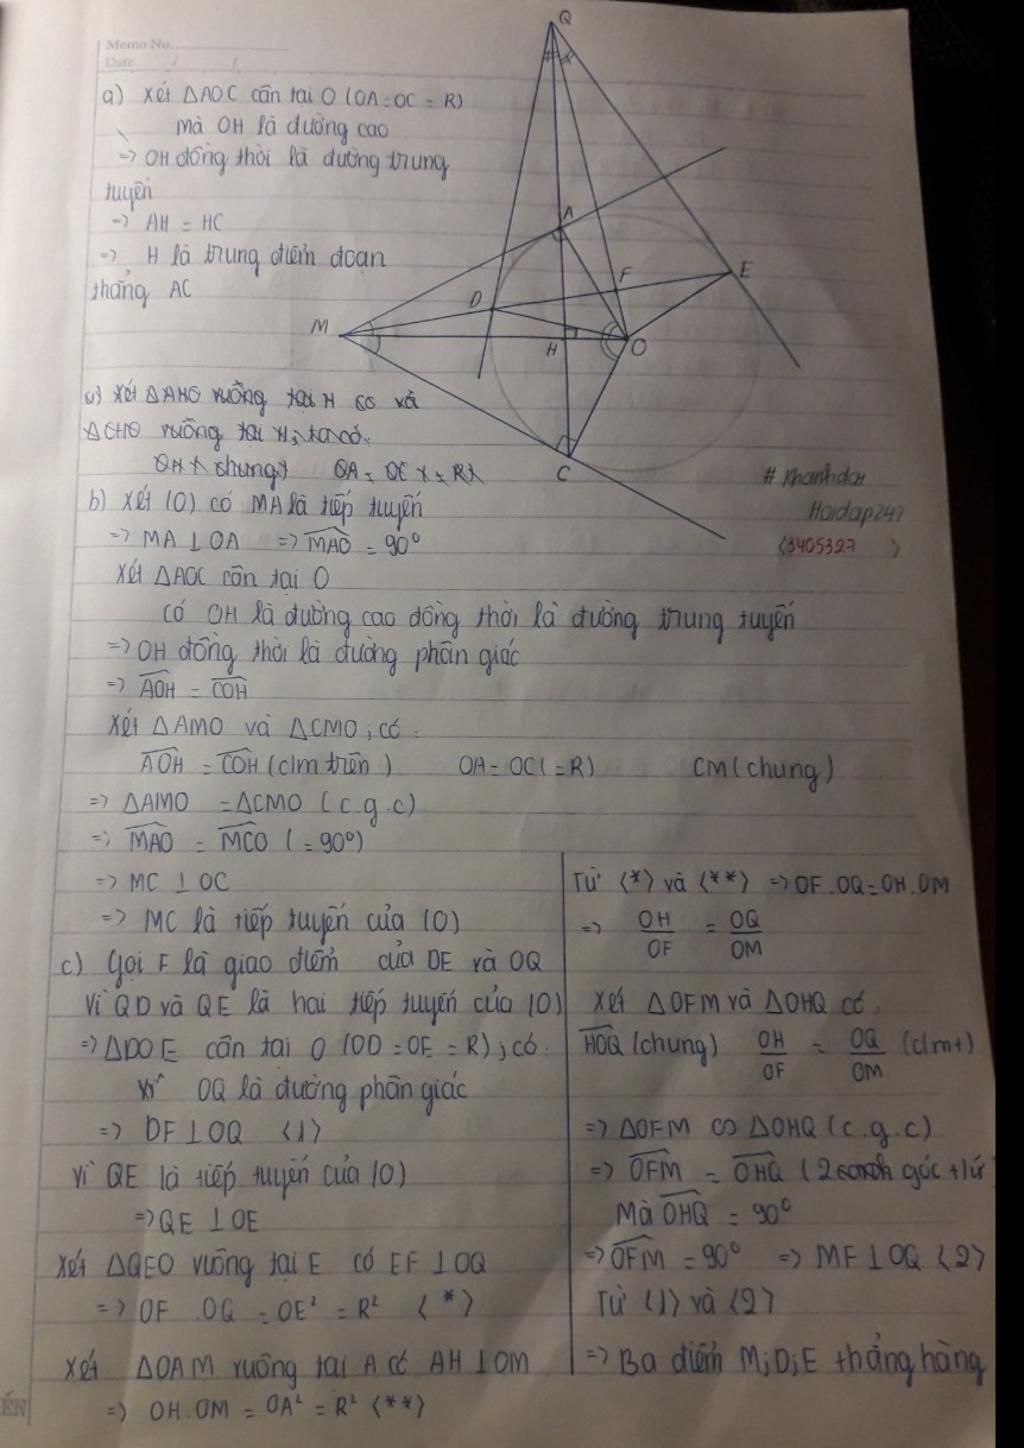 Memo No.
Date / /
a) Xét ΔAOC cân tại O (OA=OC = R)
mà OH là đường cao
=> OH đồng thời là đường trung
tuyến
=> AH = HC
=> H là trung điểm đoạn
thẳng AC
Q
A
F
E
D
M
H
O
C
a) Xét ΔAHO vuông tại H và
ΔCHO vuông tại H, ta có:
OH chung OA = OC = R
# Khanhdar
Hoidap247
(3405327 )
b) Xét (O) có MA là tiếp tuyến
=> MA ⊥ OA => \widehat{MAO} = 90°
Xét ΔAOC cân tại O
có OH là đường cao đồng thời là đường trung tuyến
=> OH đồng thời là đường phân giác
=> \widehat{AOH} = \widehat{COH}
Xét ΔAMO và ΔCMO ; có :
\widehat{AOH} = \widehat{COH} (clm trên) OA = OC (= R) CM (chung)
=> ΔAMO = ΔCMO (c.g.c)
=> \widehat{MAO} = \widehat{MCO} (= 90°)
=> MC ⊥ OC
=> MC là tiếp tuyến của (O)
c) Gọi F là giao điểm của DE và OQ
Vì QD và QE là hai tiếp tuyến của (O)
=> ΔDOE cân tại O (OD = OE = R) ; có :
OQ là đường phân giác
=> DF ⊥ OQ <1>
Vì QE là tiếp tuyến của (O)
=> QE ⊥ OE
Xét ΔQEO vuông tại E có EF ⊥ OQ
=> OF . OQ = OE² = R² <*>
Xét ΔOAM vuông tại A có AH ⊥ OM
=> OH.OM = OA² = R² <**>
Từ <*> và <**> => OF.OQ = OH.OM
=> OH/OF = OQ/OM
Xét ΔOFM và ΔOHQ có :
\widehat{HOQ} (chung) OH/OF = OQ/OM (clmt)
=> ΔOFM ∽ ΔOHQ (c.g.c)
=> \widehat{OFM} = \widehat{OHQ} (2 góc +/ứ)
Mà \widehat{OHQ} = 90°
=> \widehat{OFM} = 90° => MF ⊥ OQ <2>
Từ <1> và <2>
=> Ba điểm M;D;E thẳng hàng
ẾN